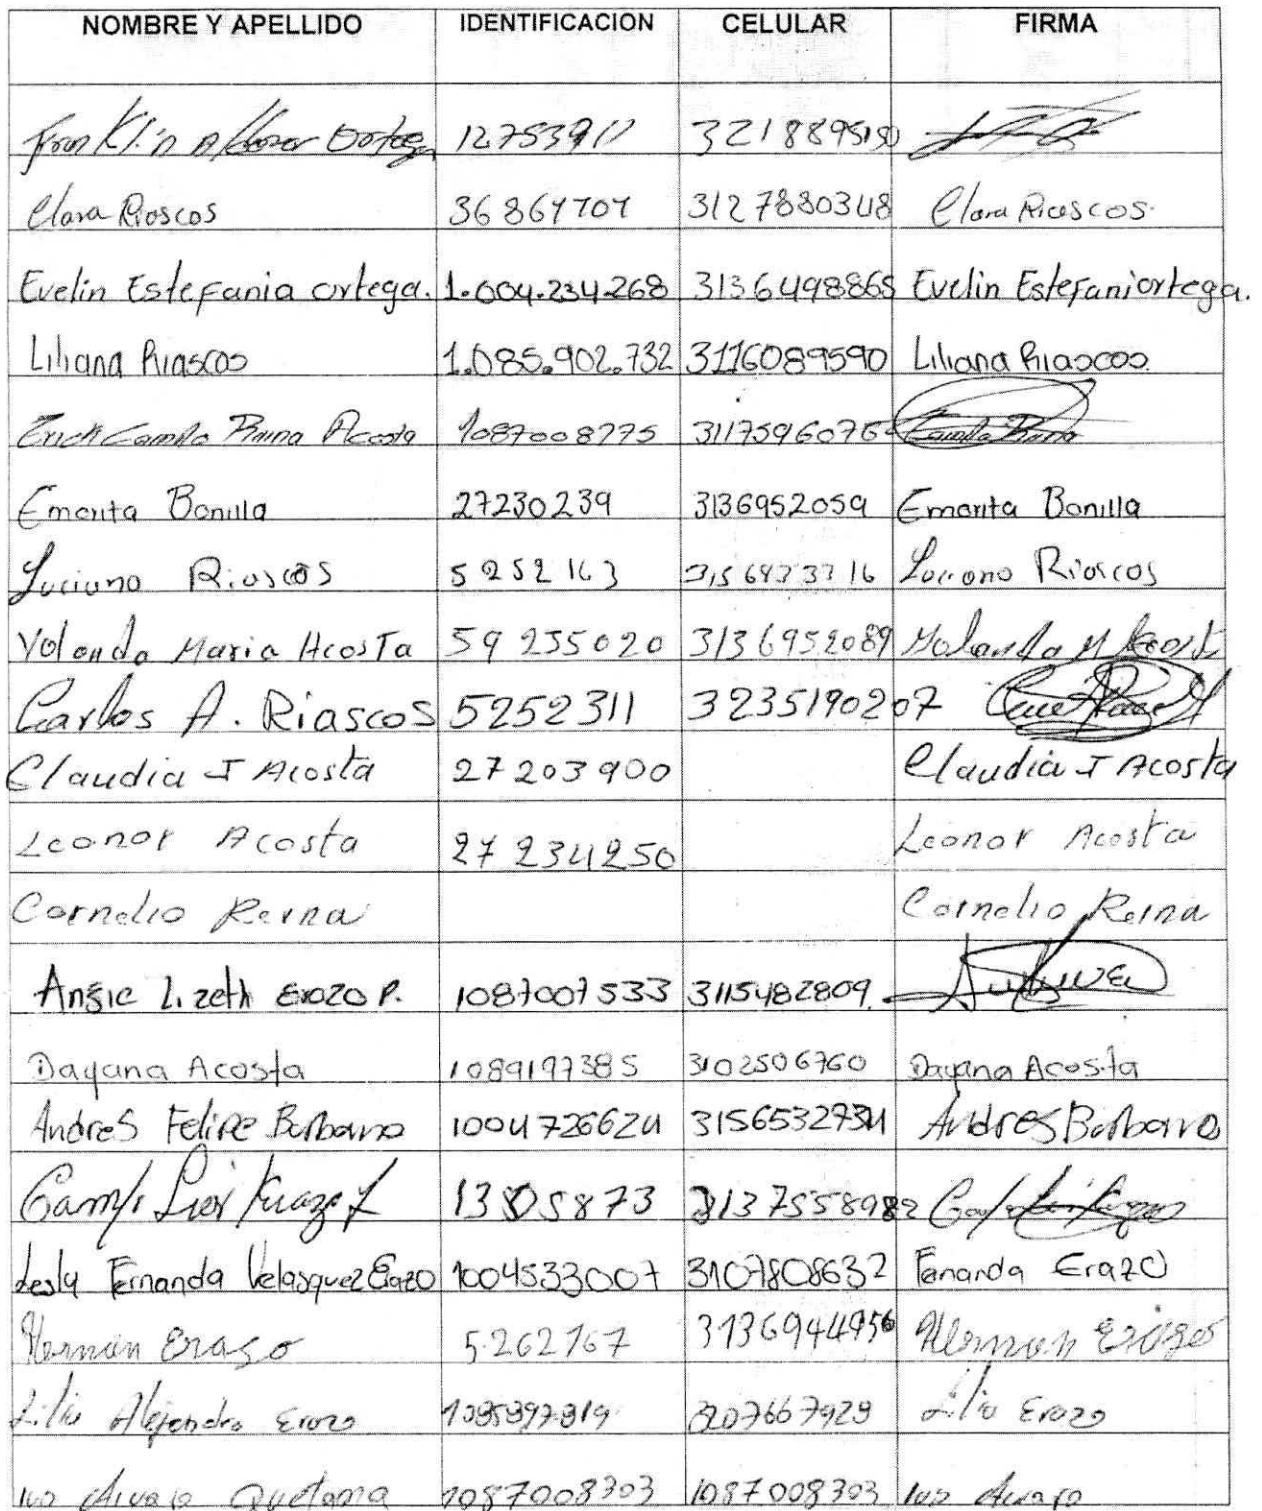 NOMBRE Y APELLIDO IDENTIFICACION CELULAR FIRMA
Franklin Ortega 12753911 3218895130
Clara Rioscos 36867707 3127880348 Clara Riascos.
Evelin Estefania ortega. 1.004.234.268 3136498865 Evelin Estefaniortega.
Liliana Riascos 1.085.902.732 3116089590 Liliana Riascos.
Erick Camilo Reina Acosta 1087008775 3117596076 Camilo Reina
Emerita Bonilla 27230239 3136952059 Emerita Bonilla
Luciano Riascos 5252163 Luciano Riascos
Yolanda Maria Acosta 59235020 3136952089 Yolanda M Acosta
Carlos A. Riascos 5252311 3235190207
Claudia J Acosta 27203900 Claudia J Acosta
Leonor Acosta 27234250 Leonor Acosta
Cornelio Reina Cornelio Reina
Angie Lizeth Erozo P. 1087007533 3115482809.
Dayana Acosta 1089197385 3102506760 Dayana Acosta
Andres Felipe Burbano 1004726624 3156532734 Andres Burbano
3137558982
Lesly Fernanda Velasquez Erazo 1004533007 3107808632 Fenanda Erazo
Hernan Eraso 5.262767 3136944956 Hernan Erazo
Lilia Alejandra Erozo 1085897819 3207667929 Lilia Erozo
Quetama 1087008303 1087008303